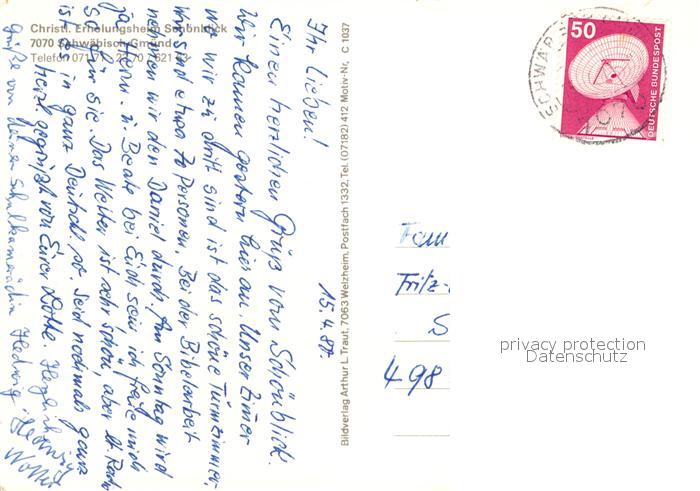 Christl. Erholungsheim Schönblick
7070 Schwäbisch Gmünd
Telefon 071 71 - 22 70 / 621 63
15.4.87.
Ihr Lieben!
Einen herzlichen Gruß vom Schönblick.
Wir kamen gestern hier an. Unser Zimmer
wo wir zu dritt sind ist das schöne Turmzimmer.
Wir sind etwa 70 Personen. Bei der Bibelarbeit
nehmen wir den Daniel durch. Am Sonntag wird
ja Herm. u. Beate bei Euch sein ich freue mich
so für sie. Das Wetter ist sehr schön, aber lt. Radio
ist es in ganz Deutschl. so. Seid nochmals ganz
herzl. gegrüßt von Eurer Lotte. Herzlich
Grüße von deiner Schulkameradin Hedwig
Bildverlag Arthur L. Traut, 7063 Welzheim, Postfach 1332, Tel. (07182) 412 Motiv-Nr. C 1037
50
DEUTSCHE BUNDESPOST
SCHWÄB
Fam
Fritz-
S
498
privacy protection
Datenschutz